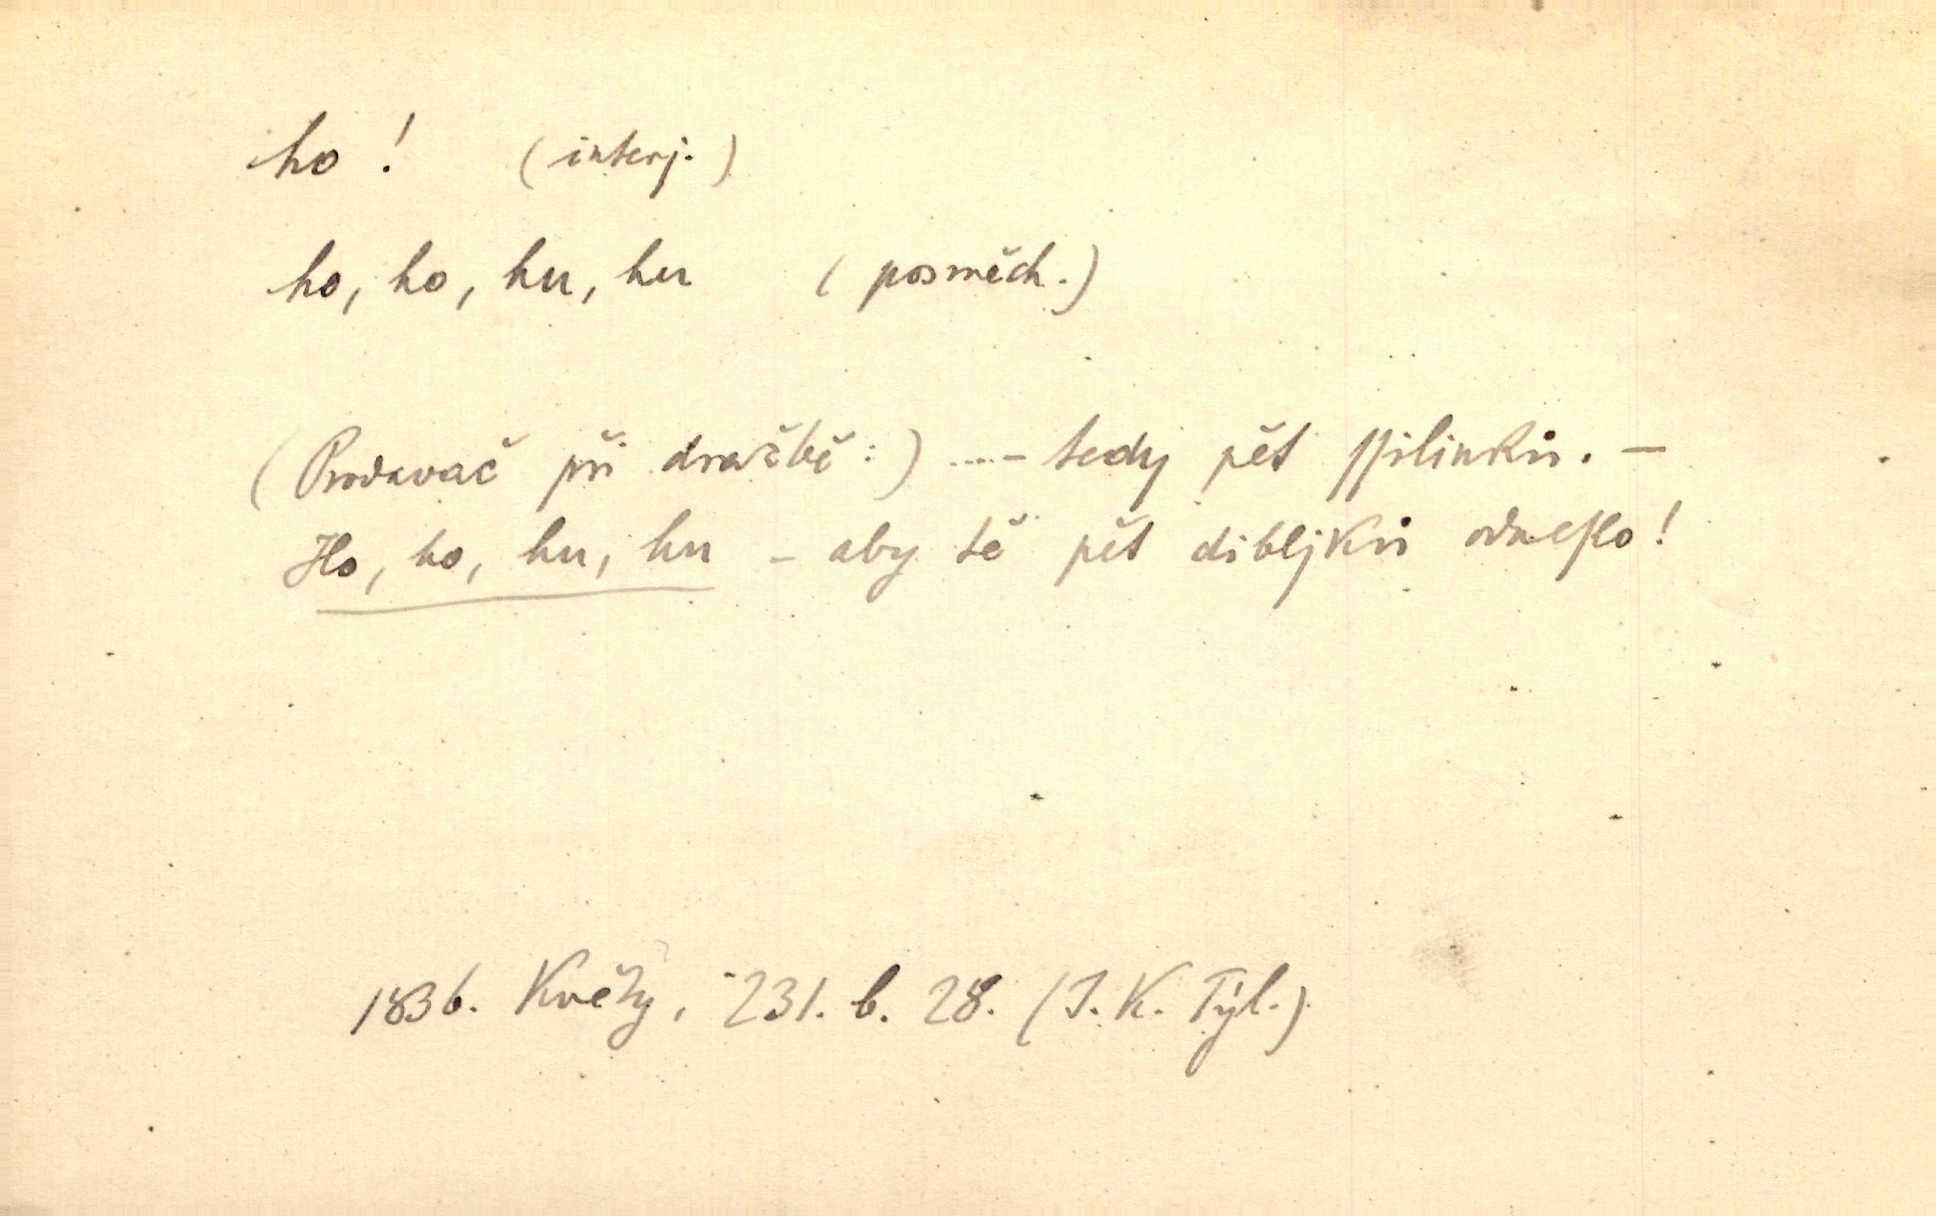 ho! (interj.)
ho, ho, hu, hu (posměch.)
(Prodavač při dražbě:) ....– tedy pět ſſilinků. –
Ho, ho, hu, hu – aby tě pět dibljků odneſlo!
1836. Květy, 231. b. 28. (J. K. Týl.)